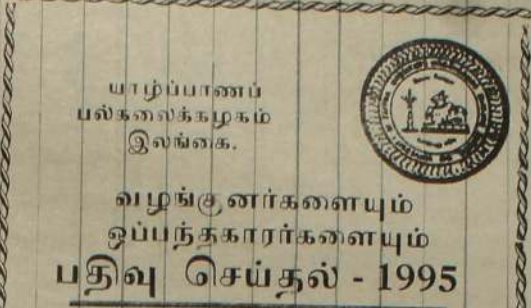 யாழ்ப்பாணப்
பல்கலைக்கழகம்
இலங்கை.
வழங்குனர்களையும்
ஒப்பந்தகாரர்களையும்
பதிவு செய்தல் - 1995